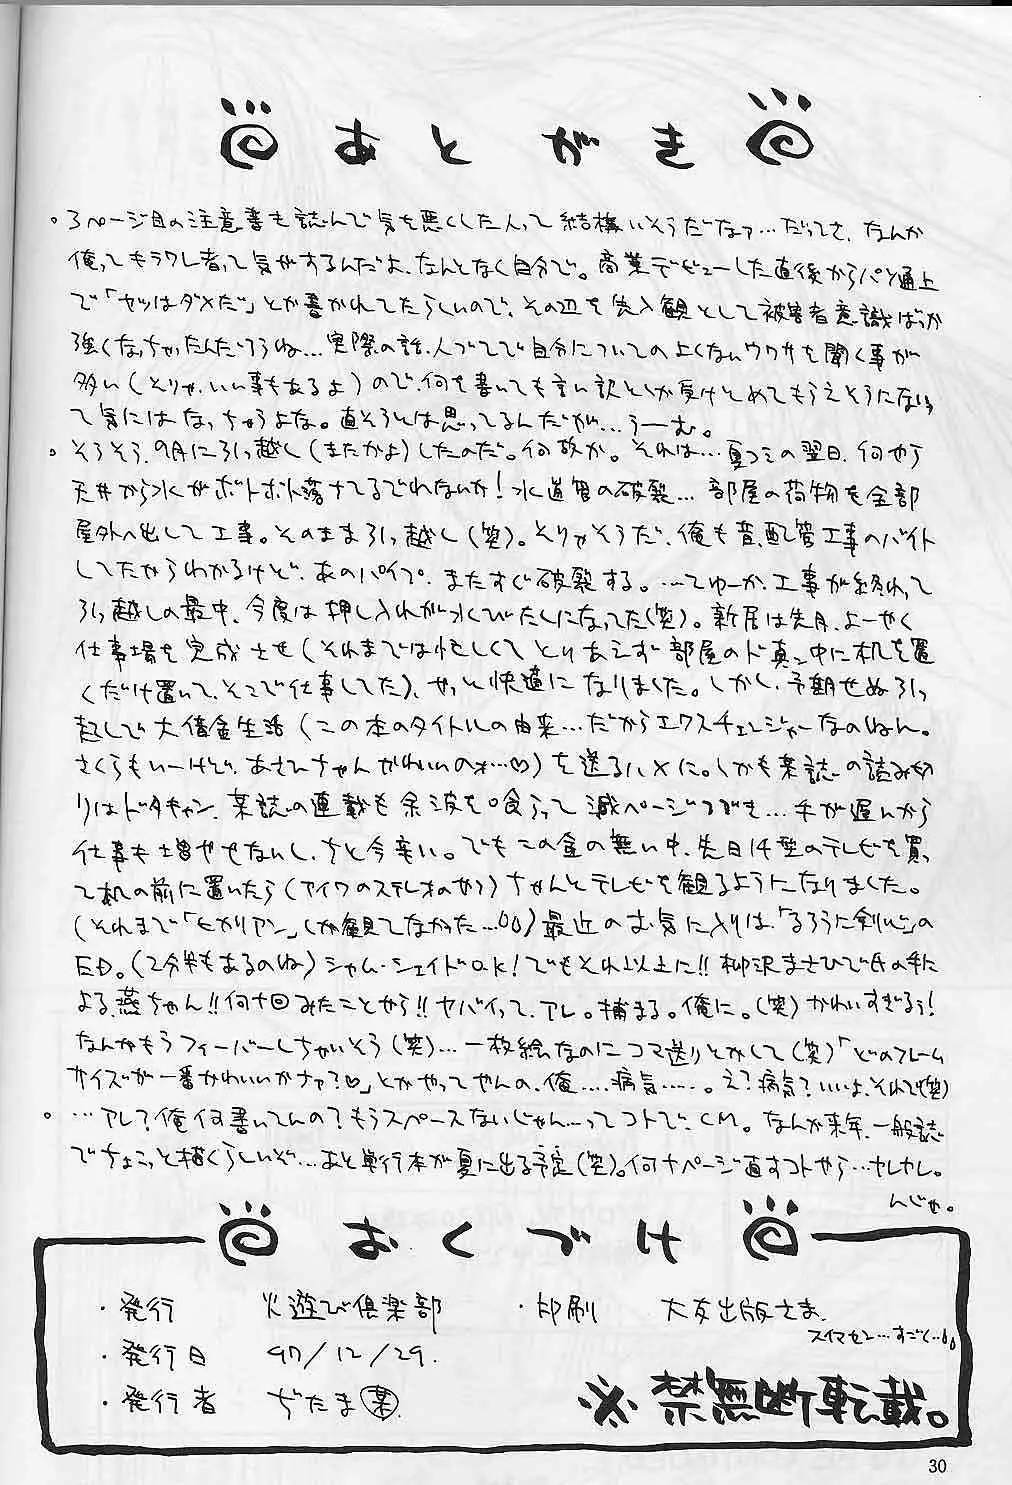 あとがき
。3ページ目の注意書を読んで気を悪くした人って結構いそうだなァ…だってさ、なんか
俺ってキラワレ者って気がするんだよ、なんとなく自分で。商業デビューした直後からパソ通上
で「ヤツはダメだ」とか書かれてたらしいので、その辺を先入観として被害者意識ばっか
強くなっちゃったんだろうね…実際の話、人づてで自分についての良くないウワサを聞く事が
多い(そりゃ、いい事もあるよ)ので、何を書いても言い訳としか受けとめてもらえそうにないっ
て気にはなっちゃうよな。直そうとは思ってるんだが…うーむ。
。そうそう、9月に引っ越し(またかよ)したのだ。何故か。それは…夏コミの翌日、何やら
天井から水がボトボト落ちてるでわないか!水道管の破裂…部屋の荷物を全部
屋外へ出して工事。そのまま引っ越し(笑)。そりゃそうだ、俺も昔、配管工事のバイト
してたからわかるけど、あのパイプ、またすぐ破裂する。…てゆーか、工事が終わって
引っ越しの最中、今度は押し入れが水びたしになってた(笑)。新居は先月、よーやく
仕事場を完成させ(それまでは忙しくてとりあえず部屋のド真ン中に机を置
くだけ置いて、そこで仕事してた)、やっと快適になりました。しかし、予期せぬ引っ
越しで大借金生活(この本のタイトルの由来…だからエクスチェンジャーなのねん。
さくらもいーけど、あさひちゃんかわいいのォ…♡)を送るハメに。しかも某誌の読み切
りはドタキャン、某誌の連載も余波を喰らって減ページつづき…手が遅いから
仕事も増やせないし、ちと今辛い。でもこの金の無い中、先日14型のテレビを買っ
て机の前に置いたら(アイワのステレオのやつ)ちゃんとテレビを観るようになりました。
(それまで「ヒカリアン」しか観てなかった…)最近のお気に入りは「るろうに剣心」の
ED。(2分半もあるのね)シャム・シェイドOK!でもそれ以上に!!柳沢まさひで氏の手に
よる燕ちゃん!!何十回みたことやら!!ヤバイって、アレ。捕まる。俺に。(笑)かわいすぎるぅ!
なんかもうフィーバーしちゃいそう(笑)…一枚絵なのにコマ送りとかして(笑)「どのフレーム
サイズが一番かわいいかナァ?♡」とかやってやんの、俺....病気.....。え?病気?いいよ、それで(笑)
。…アレ?俺何書いてんの?もうスペースないじゃん…ってコトで、CM。なんか来年、一般誌
でちょこっと描くらしいぞ…あと単行本が夏に出る予定(笑)。何十ページ直すコトやら…ナレカレ。
んじゃ。
おくづけ
・発行 火遊び倶楽部 ・印刷 大友出版さま
スイマセン…すごく…
・発行日 97/12/29.
・発行者 ぢたま(某).
※禁無断転載。
30